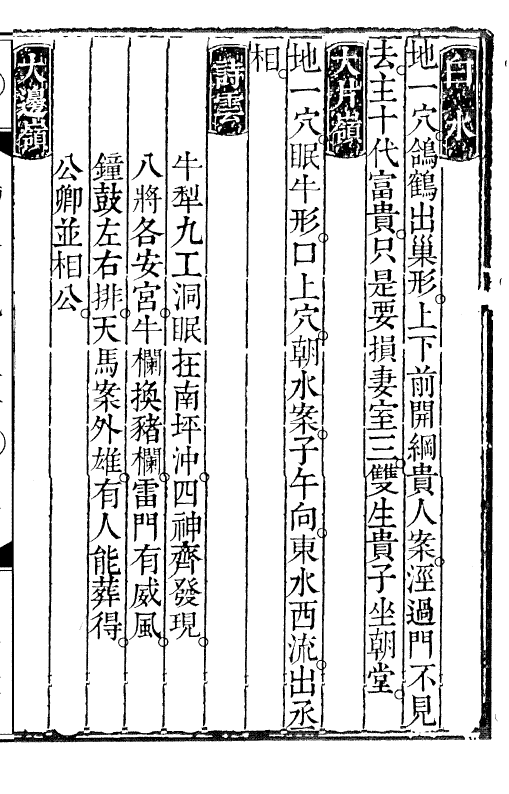 白水
地一穴。鴿鶴出巢形。上下前開綱貴人案。涇過門不見
去。主十代富貴。只是要損妻室三雙。生貴子坐朝堂。
大片嶺
地一穴。眠牛形。口上穴。朝水案。子午向。東水西流。出丞
相。
詩雲
牛犁九工洞眠在南坪沖。四神齊發現。
八將各安宮。牛欄換豬欄。雷門有威風。
鐘鼓左右排。天馬案外雄。有人能葬得。
公卿並相公。
大邊嶺